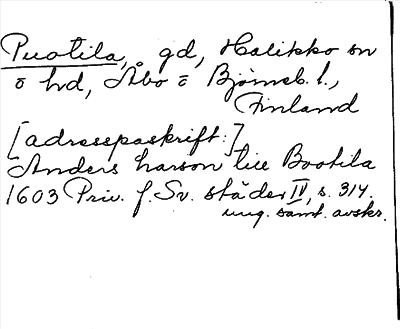 Puotila, gd, Halikko sn
o hd, Åbo o Björneb. l.,
Finland
[adresspåskrift:]
Anders Larson till Bootila
1603 Priv. f. Sv. städer IV, s. 314.
ung. samt. avskr.